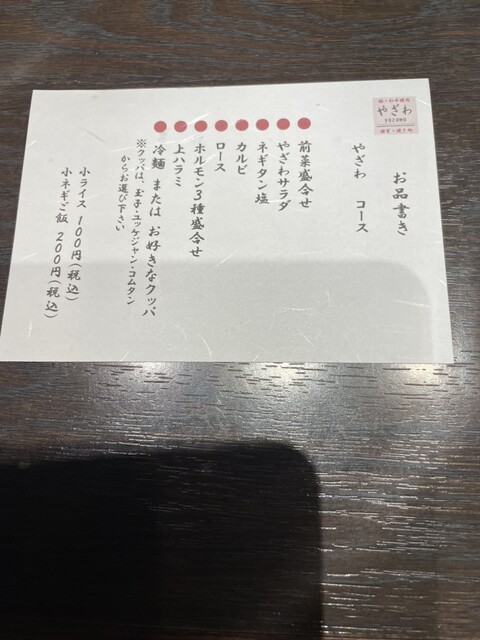 やざわ
YAZAWA
お品書き
やざわ コース
● 前菜盛合せ
● やざわサラダ
● ネギタン塩
● カルビ
● ロース
● ホルモン3種盛合せ
● 上ハラミ
● 冷麺 または お好きなクッパ
※クッパは、玉子・ユッケジャン・コムタン
からお選び下さい
小ライス 100円(税込)
小ネギご飯 200円(税込)